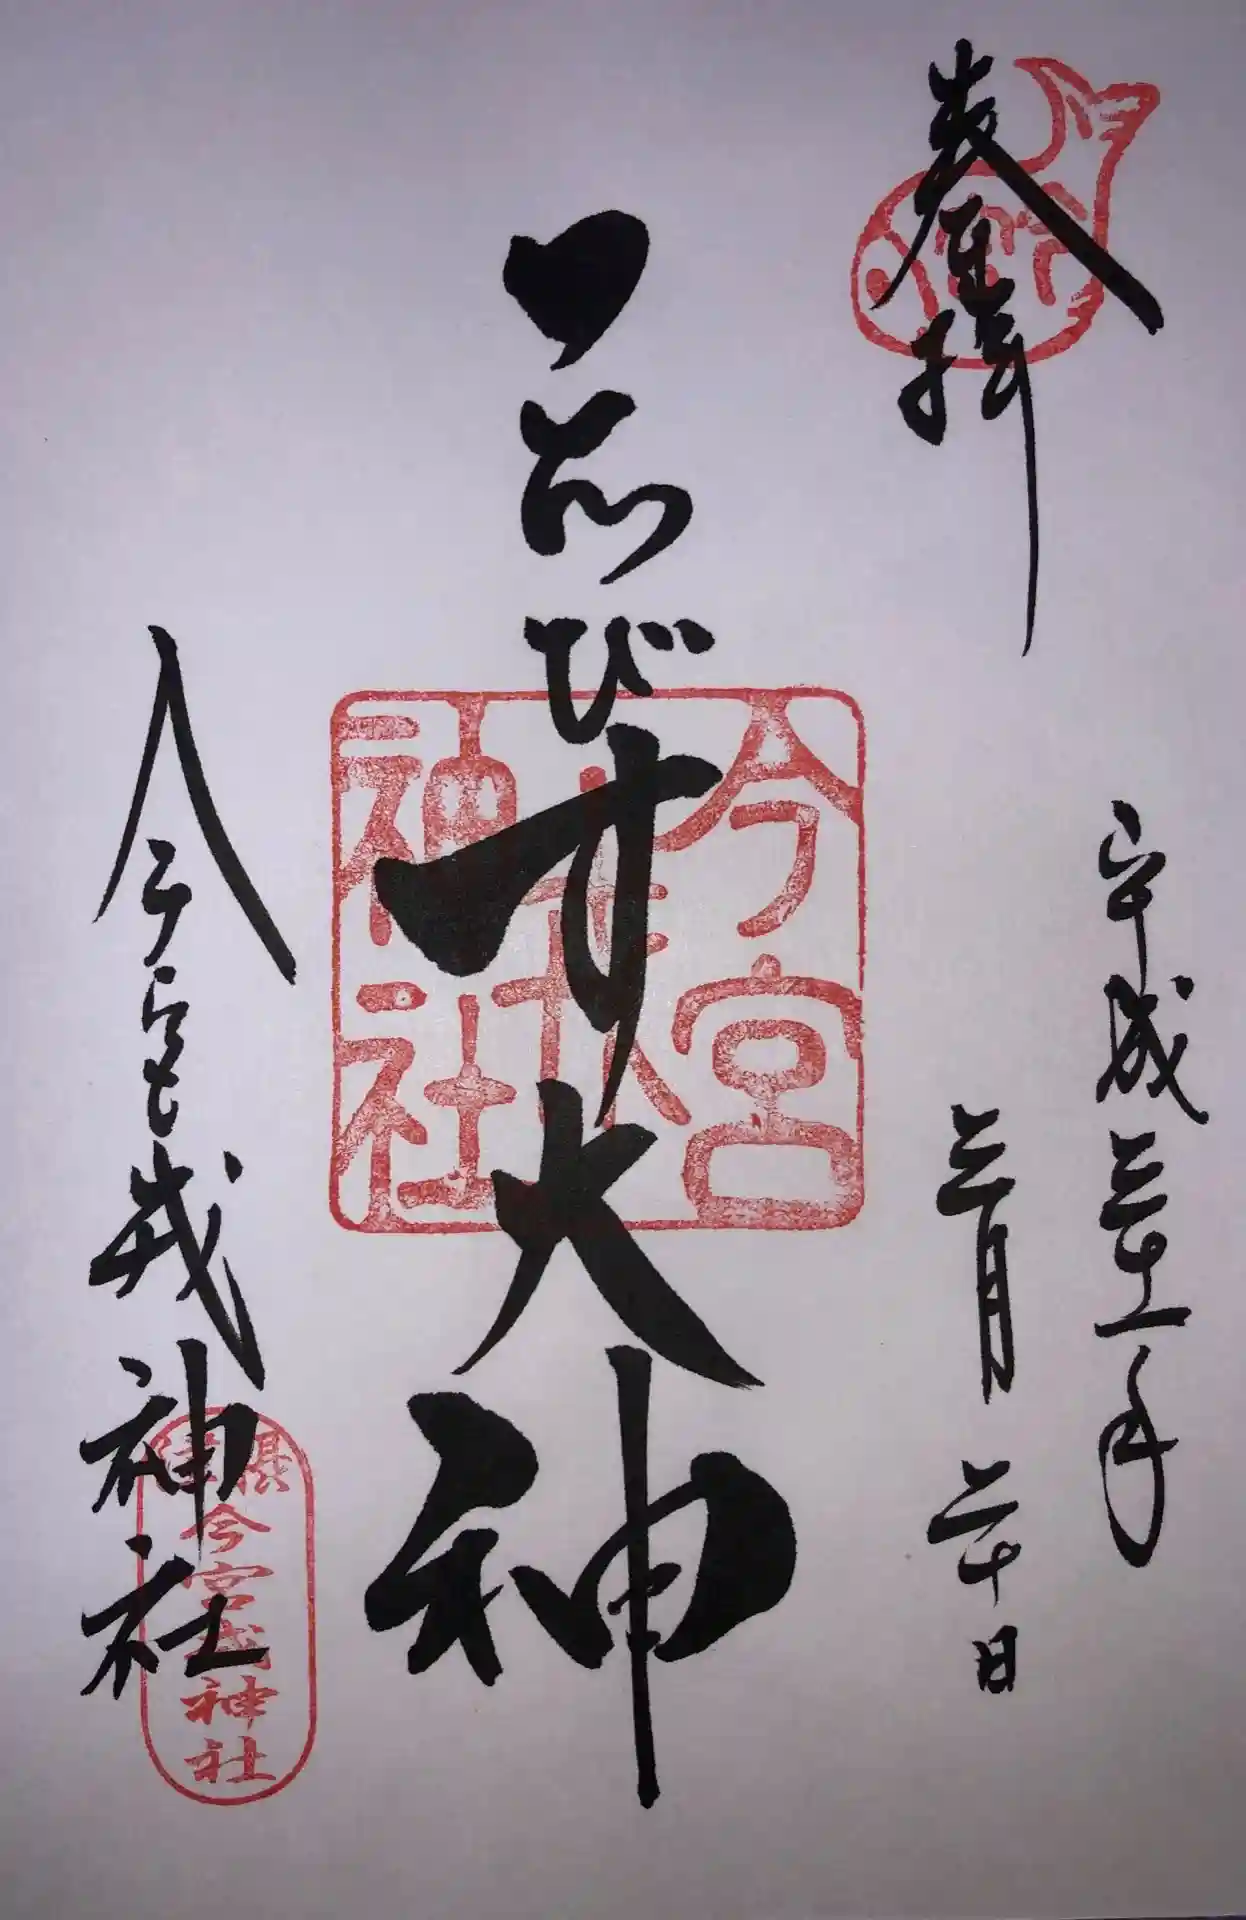 奉拝
平成三十一年
三月二十日
ゑびす大神
今宮戎神社
今宮戎神社
摂津
今宮戎神社